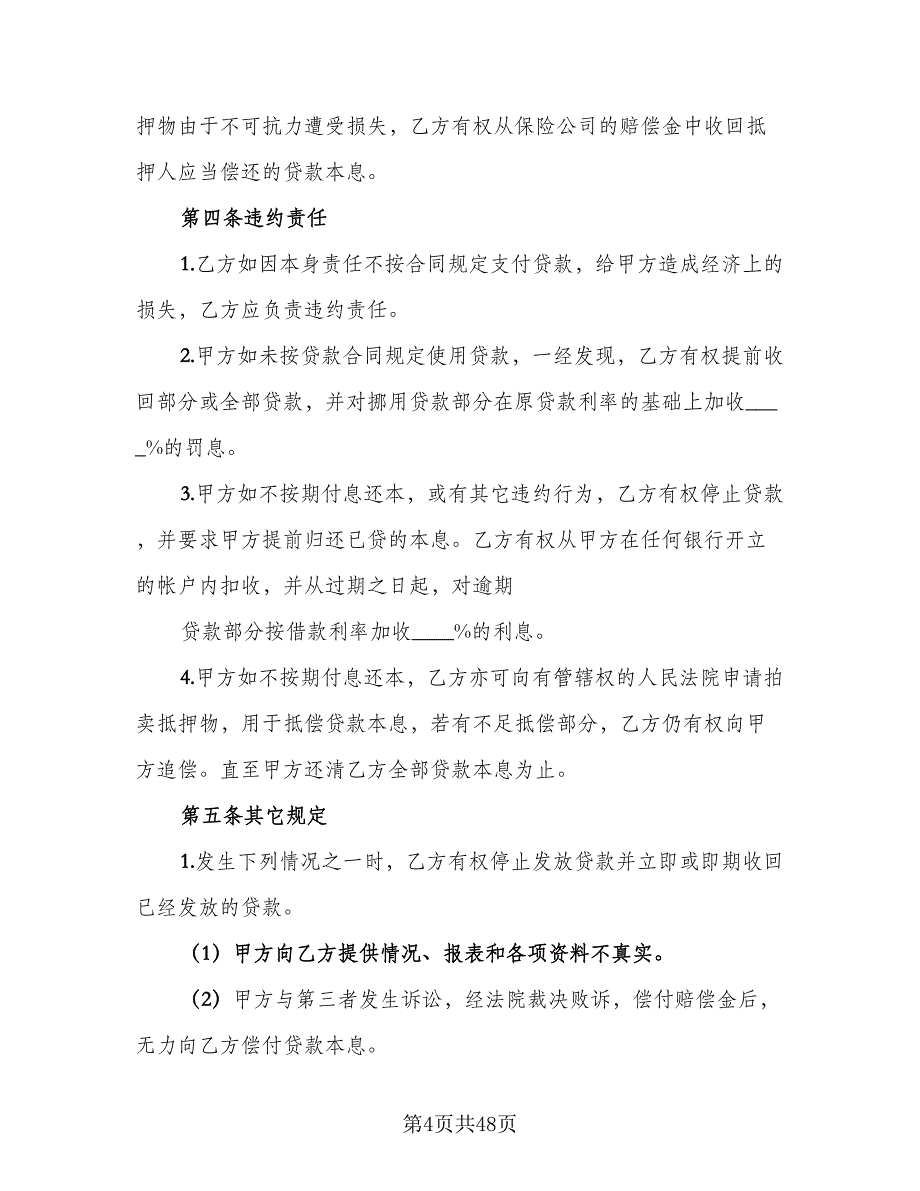 押物由于不可抗力遭受损失，乙方有权从保险公司的赔偿金中收回抵
押人应当偿还的贷款本息。
第四条违约责任
1.乙方如因本身责任不按合同规定支付贷款，给甲方造成经济上的
损失，乙方应负责违约责任。
2.甲方如未按贷款合同规定使用贷款，一经发现，乙方有权提前收
回部分或全部贷款，并对挪用贷款部分在原贷款利率的基础上加收___
_%的罚息。
3.甲方如不按期付息还本，或有其它违约行为，乙方有权停止贷款
，并要求甲方提前归还已贷的本息。乙方有权从甲方在任何银行开立
的帐户内扣收，并从过期之日起，对逾期
贷款部分按借款利率加收____%的利息。
4.甲方如不按期付息还本，乙方亦可向有管辖权的人民法院申请拍
卖抵押物，用于抵偿贷款本息，若有不足抵偿部分，乙方仍有权向甲
方追偿。直至甲方还清乙方全部贷款本息为止。
第五条其它规定
1.发生下列情况之一时，乙方有权停止发放贷款并立即或即期收回
已经发放的贷款。
（1）甲方向乙方提供情况、报表和各项资料不真实。
（2）甲方与第三者发生诉讼，经法院裁决败诉，偿付赔偿金后，
无力向乙方偿付贷款本息。
第4页共48页